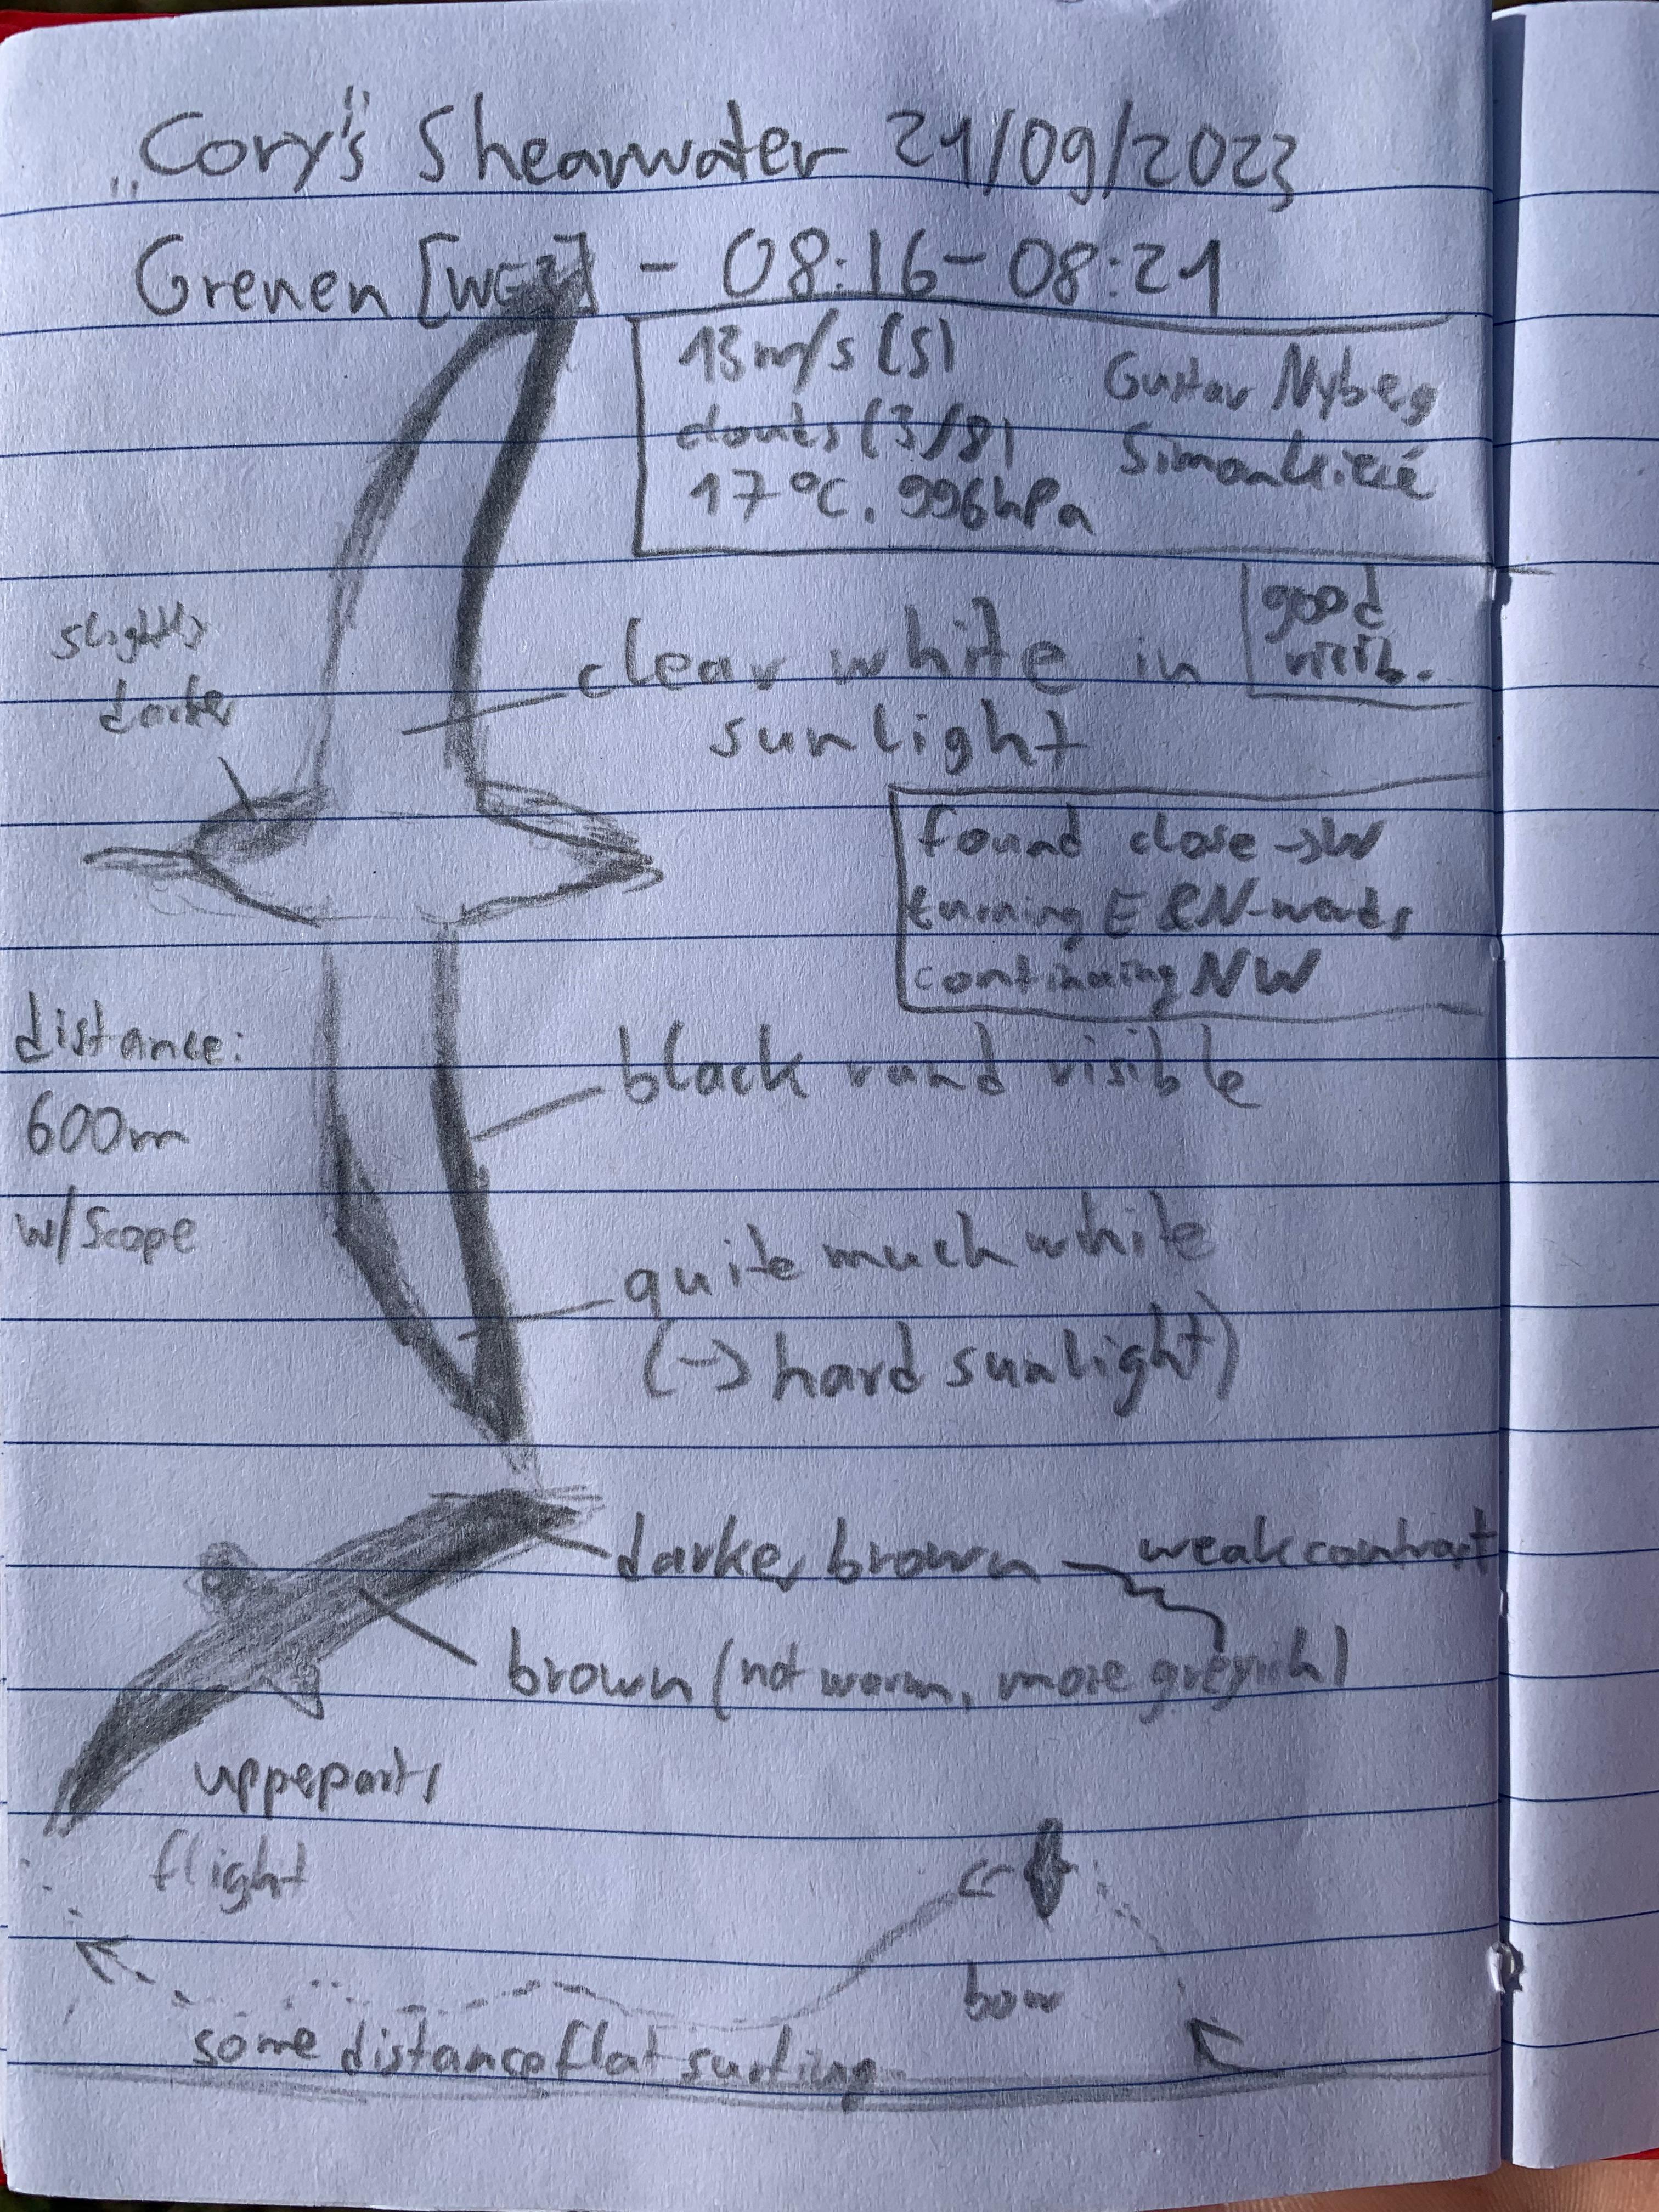 „Cory's" Shearwater 21/09/2023
Grenen - 08:16-08:21
13 m/s (S)
clouds (3/8)
17°C. 996hPa
Gustav Nybeg
Simon
good
visib.
slightly
darker
clear white in
sunlight
found close →W
turning E &N-wards
continuing NW
distance:
600m
w/Scope
black rand visible
quite much white
(→ hard sunlight)
darker brown weak contrast
brown (not warm, more greyish)
uppeparts
flight
bow
some distance flat surfing